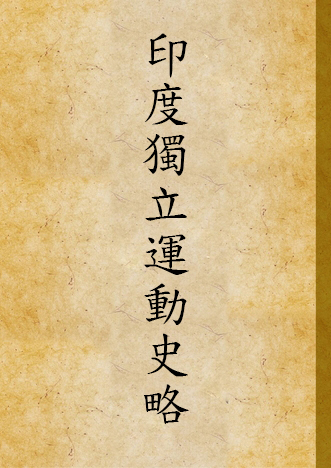 印度獨立運動史略